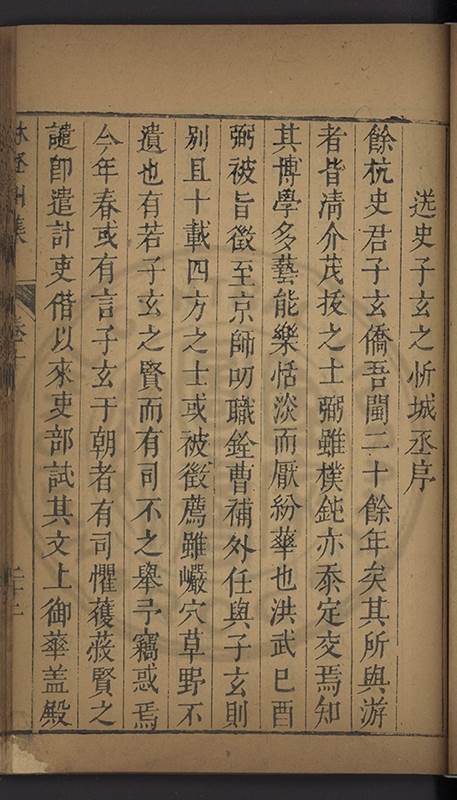 送史子玄之忻城丞序
餘杭史君子玄僑吾閩二十餘年矣其所與游
者皆清介茂拔之士弼雖樸鈍亦忝定交焉知
其博學多藝能樂恬淡而厭紛華也洪武己酉
弼被旨徵至京師叨職銓曹補外任與子玄則
別且十載四方之士或被徵薦雖巖穴草野不
遺也有若子玄之賢而有司不之舉予竊惑焉
今年春或有言子玄于朝者有司懼蔽賢之
譴即遣計吏偕以來吏部試其文上御華盖殿